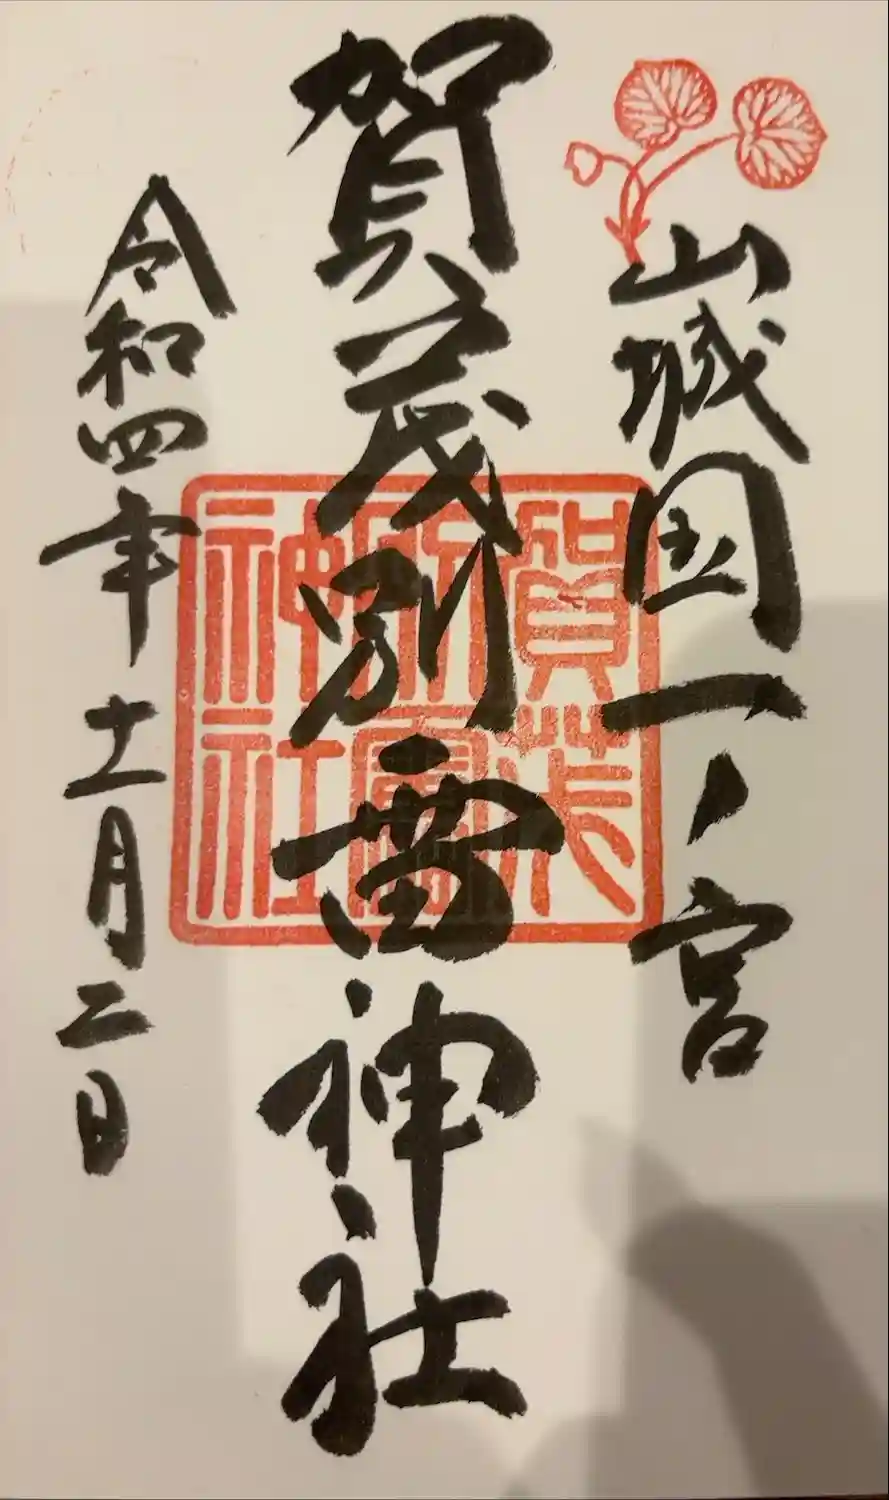 山城国一ノ宮
賀茂別雷神社
令和四年十一月二日
賀茂
別雷
神社